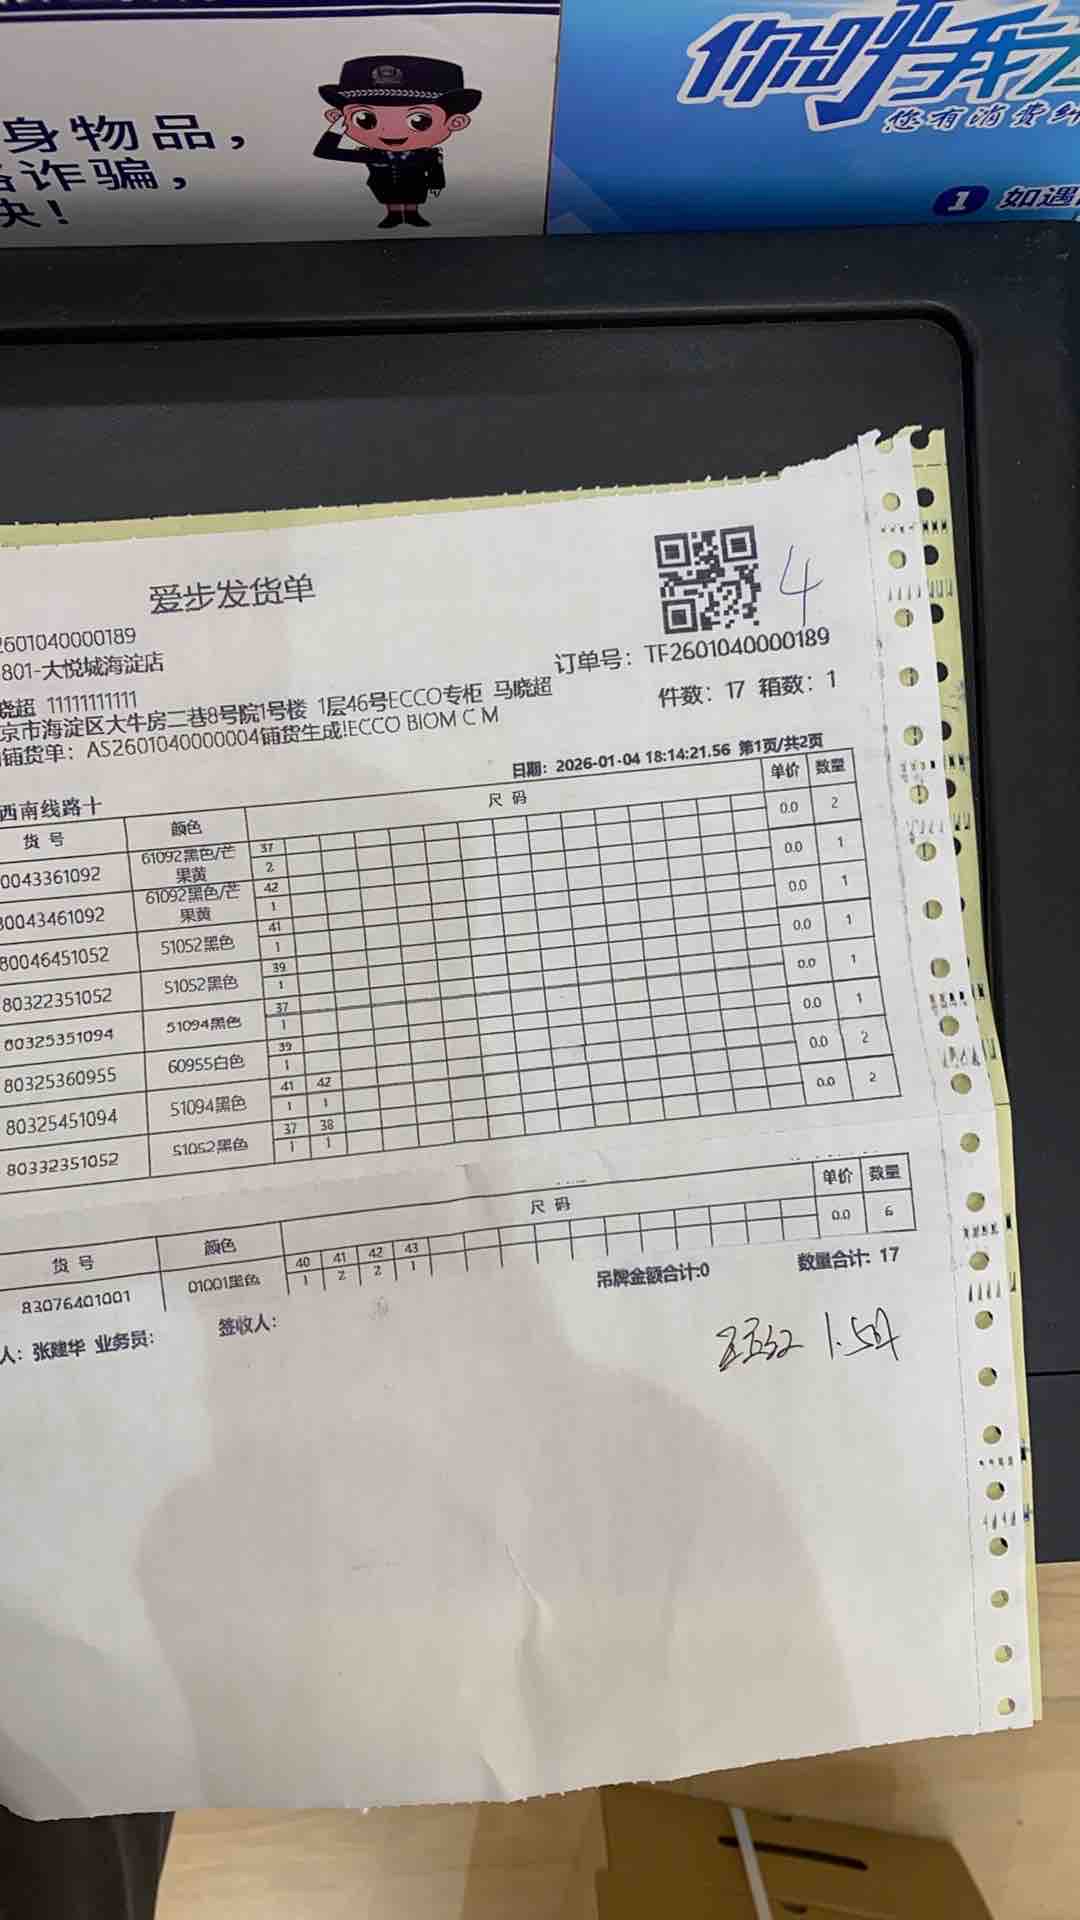 身物品，
诈骗，
！
您有消费纠
1 如遇
爱步发货单
4
2601040000189
801-大悦城海淀店
订单号：TF2601040000189
晓超 11111111111
件数：17 箱数：1
京市海淀区大牛房二巷8号院1号楼 1层46号ECCO专柜 马晓超
铺货单：AS2601040000004铺货生成!ECCO BIOM C M
日期：2026-01-04 18:14:21.56 第1页/共2页
西南线路十
货号 颜色 尺码 单价 数量
0043361092 61092黑色/芒果黄 37 2 0.0 2
80043461092 61092黑色/芒果黄 42 1 0.0 1
80046451052 51052黑色 41 1 0.0 1
80322351052 51052黑色 39 1 0.0 1
80325351094 51094黑色 37 1 0.0 1
80325360955 60955白色 39 1 0.0 1
80325451094 51094黑色 41 42 1 1 0.0 2
80332351052 51052黑色 37 38 1 1 0.0 2
货号 颜色 尺码 单价 数量
83076401001 01001黑色 40 41 42 43 1 2 2 1 0.0 6
吊牌金额合计:0 数量合计: 17
人：张建华 业务员： 签收人：